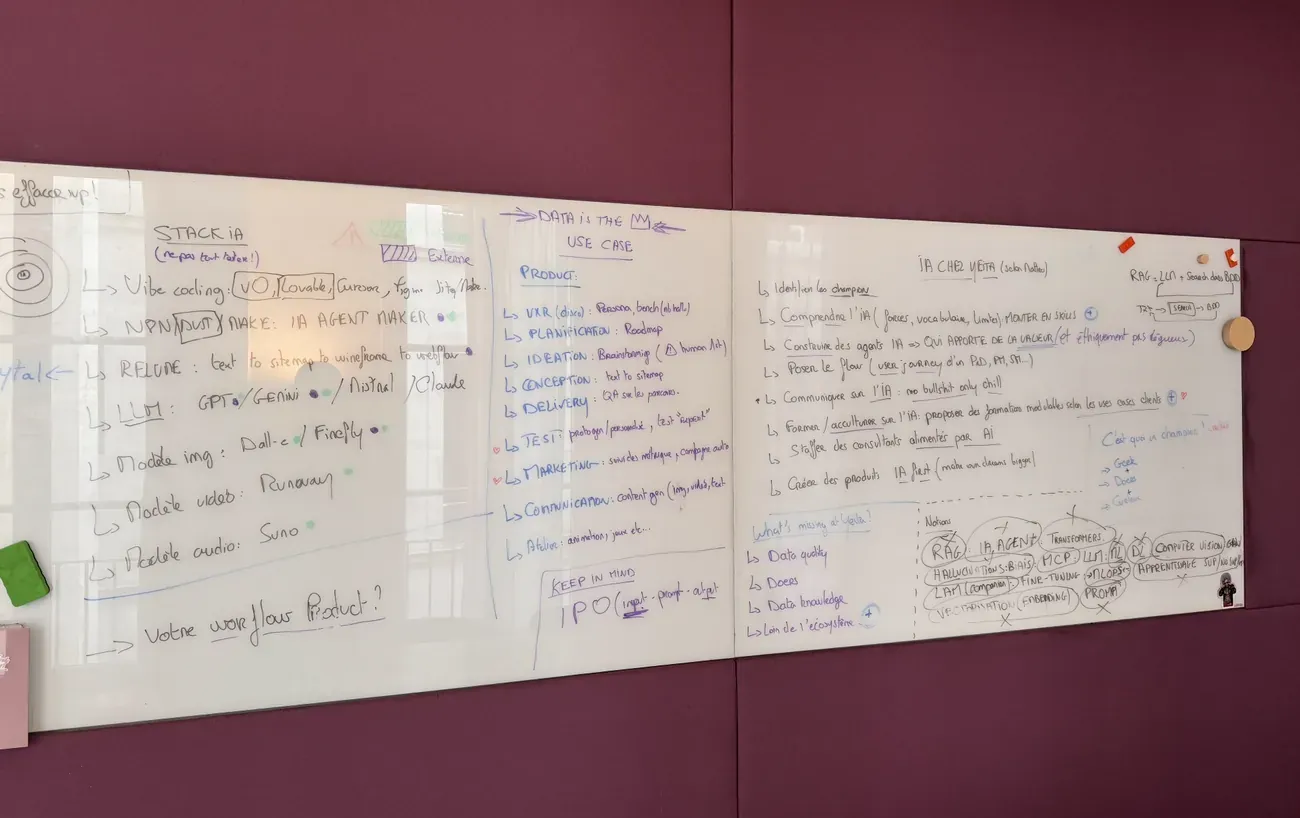 effacer svp!
STACK IA
(ne pas tout tester!)
Externe
Vibe coding: VO, Lovable, Cursor,
N8N/DUST/MAKE: IA AGENT MAKER
RELUME: text to sitemap to wireframe to webflow
LLM: GPT/GEMINI/Mistral/Claude
Modèle img: Dall-e/Firefly
Modèle vidéo: Runway
Modèle audio: Suno
Votre workflow Product?
DATA is THE
USE CASE
PRODUCT:
UXR (disco): Persona, bench
PLANIFICATION: Roadmap
IDEATION: Brainstorming (human 1st)
CONCEPTION: text to sitemap
DELIVERY: QA sur les parcours.
TEST: protogen/personae, test
MARKETING: suivi des métrique, campagne audio
COMMUNICATION: content gen (img, vidéo, text
Atelier: animation, jeux etc...
KEEP IN MIND
IPO (input - prompt - output
IA CHEZ (selon
Identifier les champions
Comprendre l'IA (forces, vocabulaire, limites), MONTER EN SKILLS +
Construire des agents IA => QUI APPORTE DE LA VALEUR (et éthiquement pas
Poser le flow (user journey d'un PO, PM,
Communiquer sur l'IA: no bullshit only chill
Former/acculturer sur l'IA: proposer des formation modulables selon les uses cases clients +
Staffer des consultants alimentés par AI
Créer des produits IA first (make your dreams bigger)
RAG = LLM + Search dans BDD
TXT → → BDD
C'est quoi un champion?
→ Geek
+
→ Doers
+
→
What's missing at
Data quality
Doers
Data knowledge
Loin de l'écosystème +
Notions
RAG IA, AGENT, TRANSFORMERS
HALLUCINATIONS: BIAIS MCP LLM ML DL COMPUTER VISION
LAM (companion) FINE-TUNING MLOPS APPRENTISSAGE SUP/
VECTORISATION (EMBEDDING) PROMPT